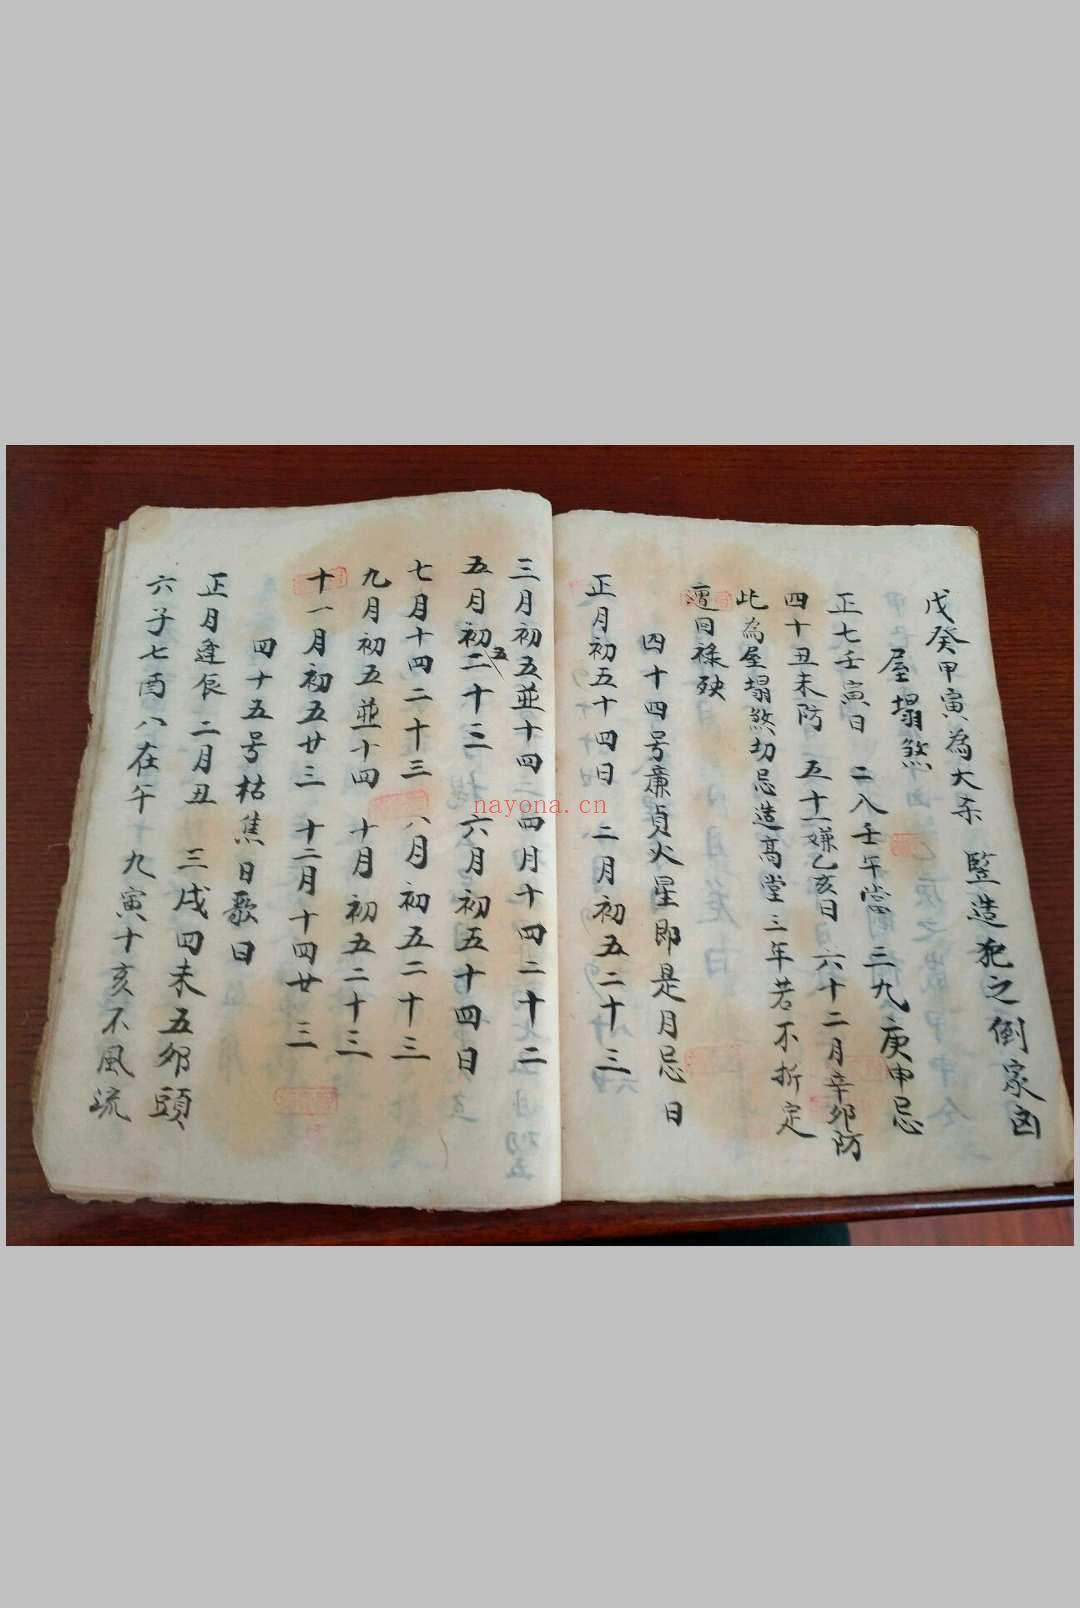 戊癸甲寅為大杀 竪造犯之倒家凶
屋塌煞
正七壬寅日 二八壬午當 三九庚申忌
四十丑未防 五十一嫌乙亥日 六十二月辛卯防
此為屋塌煞切忌造高堂三年若不折定
遭回祿殃
四十四号廉貞火星即是月忌日
正月初五十四日 二月初五二十三
三月初五並十四二 四月十四二十二
五月初五二十三 六月初五十四日
七月十四二十三 八月初五二十三
九月初五並十四 十月初五二十三
十一月初五廿三 十二月十四廿三
四十五号枯焦日歌曰
正月逢辰二月丑 三戌四未五卯頭
六子七酉八在午 九寅十亥不風流
nayona.cn